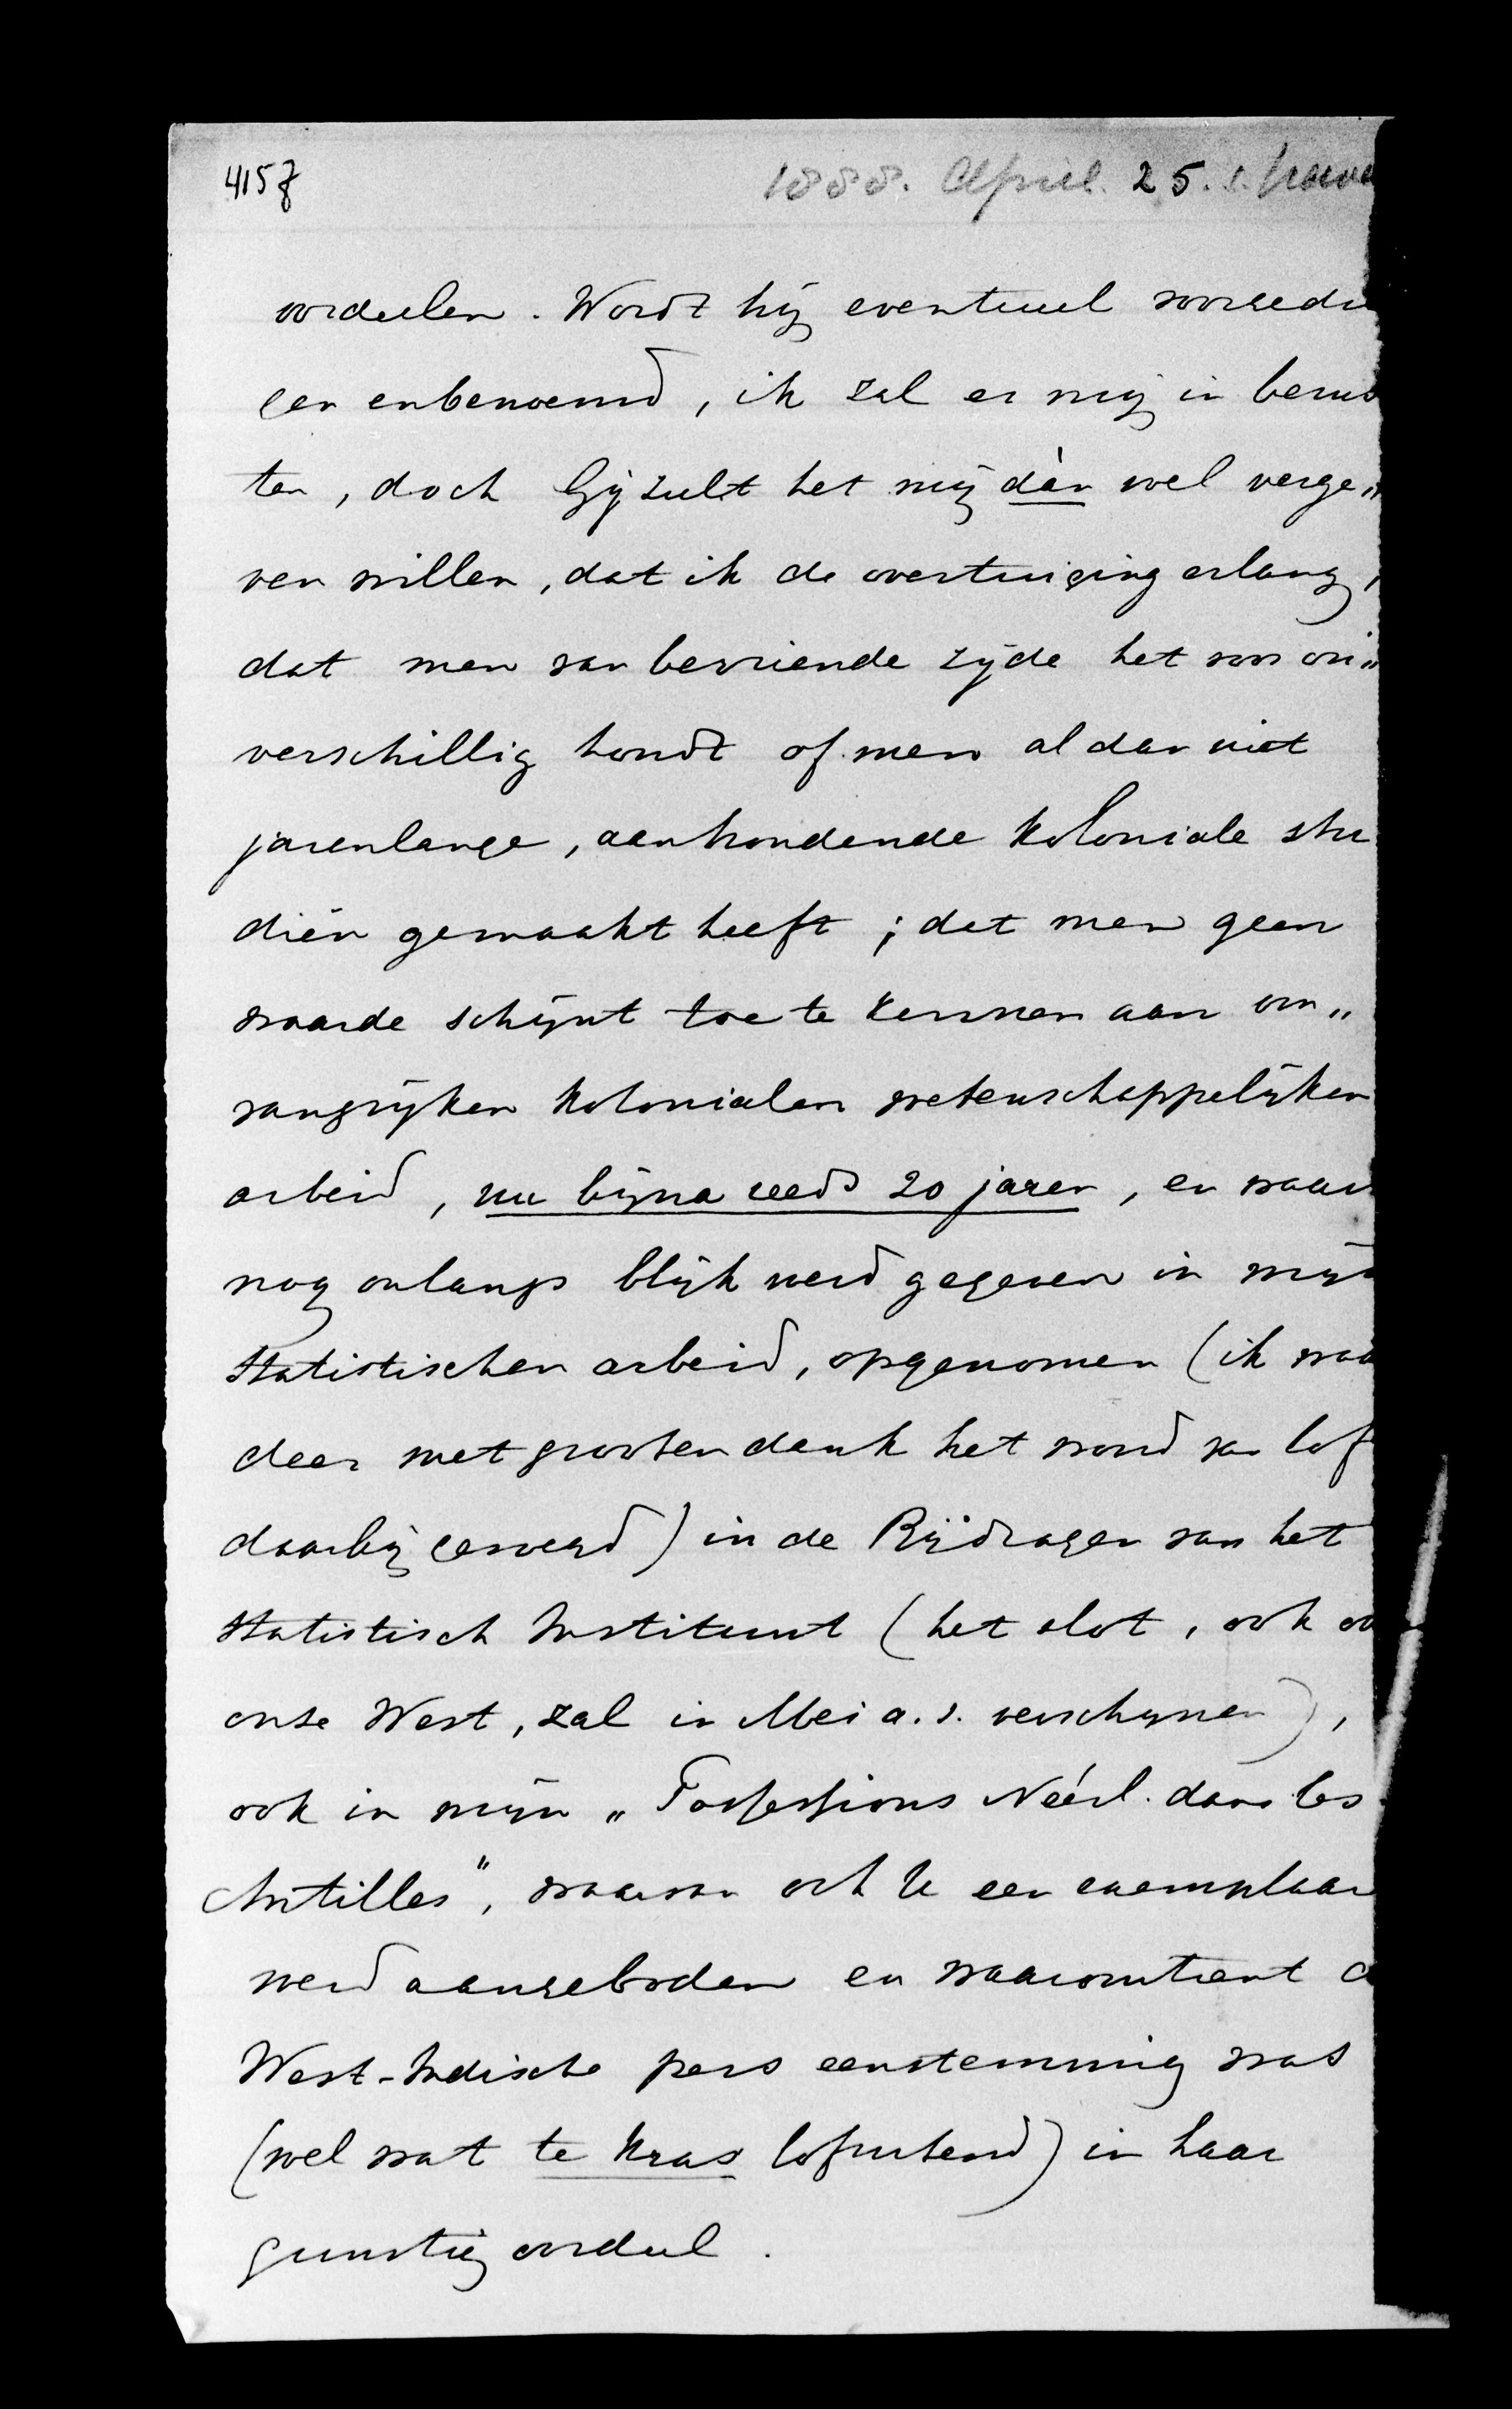 415f
1888. April. 25. s. Grave
oordeelen. Wordt hij eventueel voorgedra
gen en benoemd, ik zal er mij in berus
ten, doch Gij zult het mij dàn wel verge„
ven willen, dat ik de overtuiging erlang,
dat men van bevriende zijde het voor on„
verschillig houdt of men al dan niet
jarenlange, aanhoudende koloniale stu
diën gemaakt heeft; dat men geen
waarde schijnt toe te kennen aan om„
vangrijken kolonialen wetenschappelijken
arbeid, nu bijna reeds 20 jaren, en waar
nog onlangs blijk werd gegeven in mijn
statistischen arbeid, opgenomen (ik waar
deer met grooten dank het woord van lof
daarbij gevoegd) in de Bijdragen van het
Statistisch Instituut (het slot, ook ov
onze West, zal in Mei a.s. verschijnen),
ook in mijn „Possessions Néérl. dans les
Antilles", waarvan ook U een exemplaar
werd aangeboden en waaromtrent d
West-Indische pers eenstemmig was
(wel wat te kras lofuitend) in haar
gunstig oordeel.